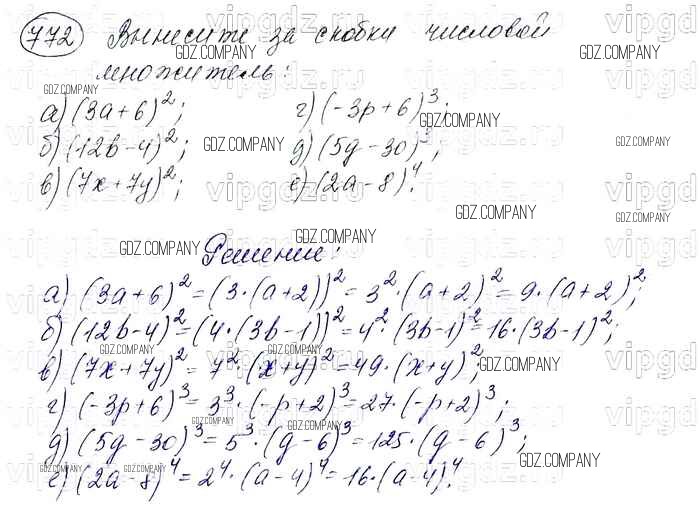 772 Вынесите за скобки числовой
множитель:
а) (3a+6)²; г) (-3p+6)³;
б) (12b-4)²; д) (5g-30)³;
в) (7x+7y)²; е) (2a-8)⁴.
Решение:
а) (3a+6)²=(3·(a+2))²=3²·(a+2)²=9·(a+2)²;
б) (12b-4)²=(4·(3b-1))²=4²·(3b-1)²=16·(3b-1)²;
в) (7x+7y)²=7²·(x+y)²=49·(x+y)²;
г) (-3p+6)³=3³·(-p+2)³=27·(-p+2)³;
д) (5g-30)³=5³·(g-6)³=125·(g-6)³;
е) (2a-8)⁴=2⁴·(a-4)⁴=16·(a-4)⁴.
GDZ.COMPANY
vipgdz.ru